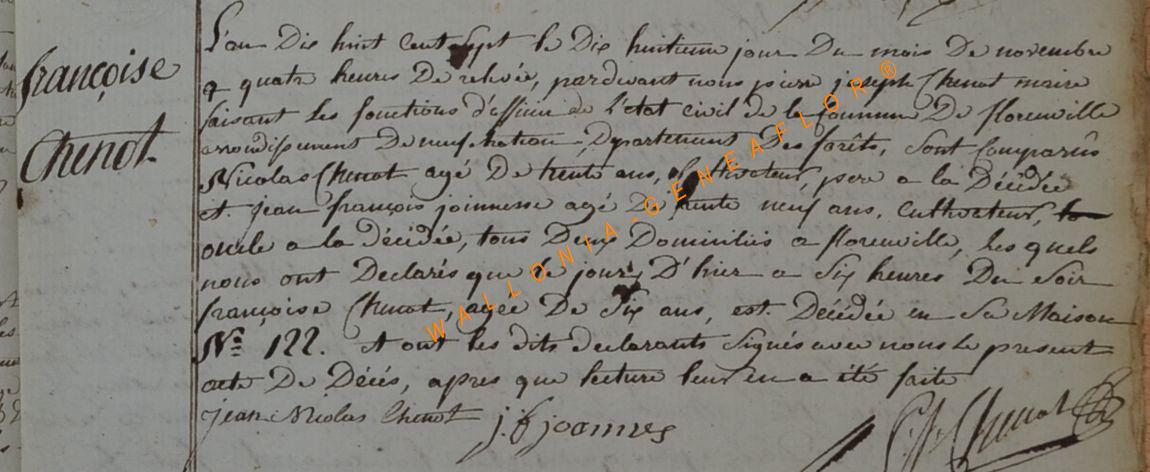 françoise
Chenot.
L'an Dix huit Cent Sept le Dix huitieme jour Du mois De novembre
a quatre heures De relevée, pardevant nous pierre joseph Chenot maire
faisant les fonctions d'officier de l'état civil de la Commune De florenville
arrondissement De neufchateau, Département Des forêts, Sont Comparûs
Nicolas Chenot agé De trente ans, Cultivateur, pere a la Décédée
et jean françois joinnesse agé De trente neuf ans, Cultivateur,
oncle a la décédée, tous Deux Domiciliés a florenville, les quels
nous ont Declarés que le jour D'hier a Six heures Du Soir
françoise Chenot, agée De Six ans, est Décédée en Sa Maison
N° 122. et ont les dits declarants Signés avec nous le present
acte De Décès, apres que lecture leur en a été faite
jean Nicolas Chenot j. f joannes P. J. Chenot
WALLONIA-GENEAFLOR®